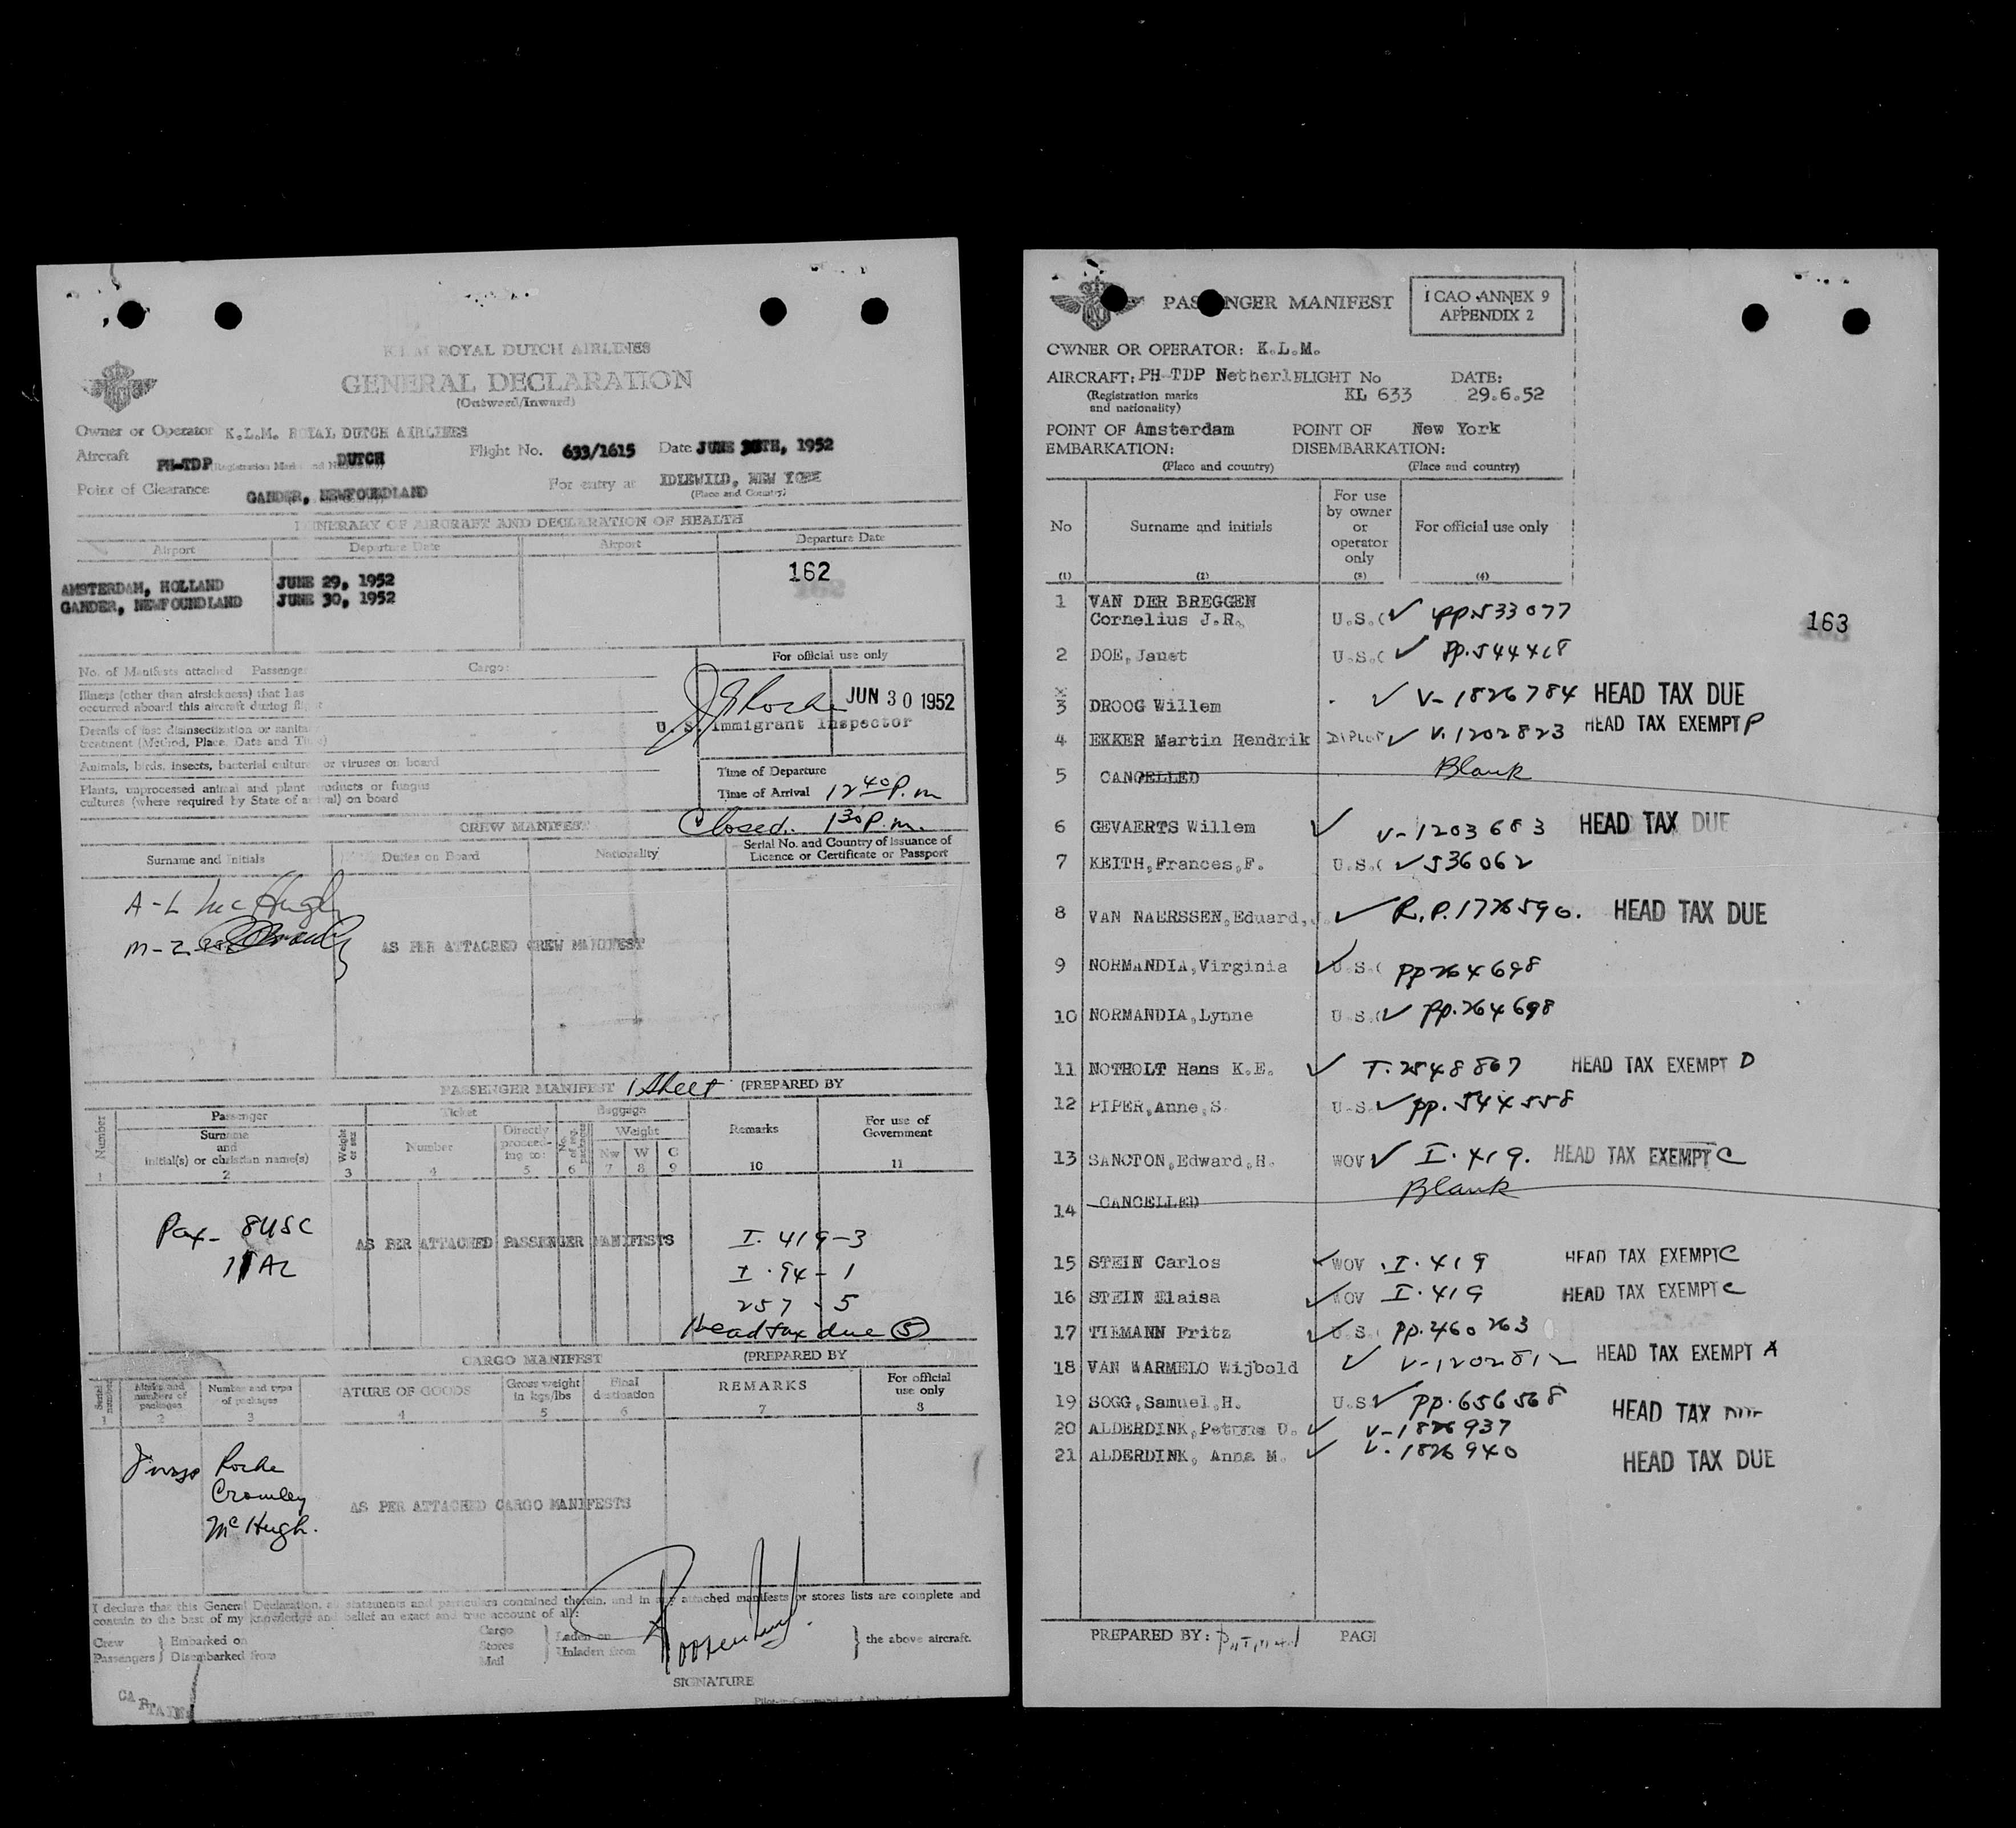 K.L.M ROYAL DUTCH AIRLINES
GENERAL DECLARATION
(Outward/Inward)
Owner or Operator K.L.M. ROYAL DUTCH AIRLINES
Aircraft PH-TDP DUTCH Flight No. 633/1615 Date JUNE 30TH, 1952
Point of Clearance GANDER, NEWFOUNDLAND For entry at IDLEWILD, NEW YORK
(Place and Country)
ITINERARY OF AIRCRAFT AND DECLARATION OF HEALTH
Airport Departure Date Airport Departure Date
162
AMSTERDAM, HOLLAND JUNE 29, 1952
GANDER, NEWFOUNDLAND JUNE 30, 1952
No. of Manifests attached Passenger Cargo:
For official use only
Illness (other than airsickness) that has
occurred aboard this aircraft during flight
JUN 30 1952
U.S. Immigrant Inspector
Details of last disinsectization or sanitary
treatment (Method, Place, Date and Time)
Animals, birds, insects, bacterial cultures or viruses on board
Plants, unprocessed animal and plant products or fungus
cultures (where required by State of arrival) on board
Time of Departure
Time of Arrival 12 40 P.m
Closed. 1 30 P.m.
CREW MANIFEST
Surname and Initials Duties on Board Nationality Serial No. and Country of Issuance of
Licence or Certificate or Passport
A-L McHugh
M-Z
AS PER ATTACHED CREW MANIFEST
PASSENGER MANIFEST 1 Sheet (PREPARED BY
Number Passenger Ticket Baggage Remarks For use of Government
Surname and initial(s) or christian name(s) Weight or sex Number Directly proceeding to: Weight
Nw W C
1 2 3 4 5 6 7 8 9 10 11
Pax - 8 USC
11 AL
AS PER ATTACHED PASSENGER MANIFESTS
I. 419-3
I. 94-1
257-5
Head tax due (5)
CARGO MANIFEST (PREPARED BY
Serial number Marks and numbers of packages Number and type of packages NATURE OF GOODS Gross weight in kgs/lbs Final destination REMARKS For official use only
1 2 3 4 5 6 7 8
Roche
Crowley
McHugh.
AS PER ATTACHED CARGO MANIFESTS
I declare that this General Declaration, all statements and particulars contained therein, and in any attached manifests or stores lists are complete and
contain to the best of my knowledge and belief an exact and true account of all:
Crew Passengers } Embarked on Disembarked from
Cargo Stores Mail } Laden on Unladen from } the above aircraft.
SIGNATURE
CAPTAIN
PASSENGER MANIFEST
I CAO ANNEX 9
APPENDIX 2
OWNER OR OPERATOR: K.L.M.
AIRCRAFT: PH-TDP Netherl FLIGHT No DATE:
(Registration marks and nationality) KL 633 29.6.52
POINT OF Amsterdam POINT OF New York
EMBARKATION: DISEMBARKATION:
(Place and country) (Place and country)
No Surname and initials For use by owner or operator only For official use only
(1) (2) (3) (4)
163
1 VAN DER BREGGEN
Cornelius J.R. U.S.C pp.533077
2 DOE, Janet U.S.C pp.544418
3 DROOG Willem V-1826784 HEAD TAX DUE
4 EKKER Martin Hendrik DIPLOM V.1202823 HEAD TAX EXEMPT P
5 CANCELLED Blank
6 GEVAERTS Willem V-1203683 HEAD TAX DUE
7 KEITH, Frances, F. U.S.C 536062
8 VAN NAERSSEN, Eduard, J. R.P.1726590. HEAD TAX DUE
9 NORMANDIA, Virginia U.S.C pp264698
10 NORMANDIA, Lynne U.S.C pp.264698
11 NOTHOLT Hans K.E. T.2548867 HEAD TAX EXEMPT D
12 PIPER, Anne, S. U.S. pp.544558
13 SANCTON, Edward, H. WOV I.419. HEAD TAX EXEMPT C
14 CANCELLED Blank
15 STEIN Carlos WOV I.419 HEAD TAX EXEMPT C
16 STEIN Elaisa WOV I.419 HEAD TAX EXEMPT C
17 TIEMANN Fritz U.S. pp.460263
18 VAN WARMELO Wijbold V-1202812 HEAD TAX EXEMPT A
19 SOGG, Samuel, H. U.S. pp.656568
20 ALDERDINK, U. V-1826937 HEAD TAX DUE
21 ALDERDINK, Anna M. V.1826940 HEAD TAX DUE
PREPARED BY: PAGE